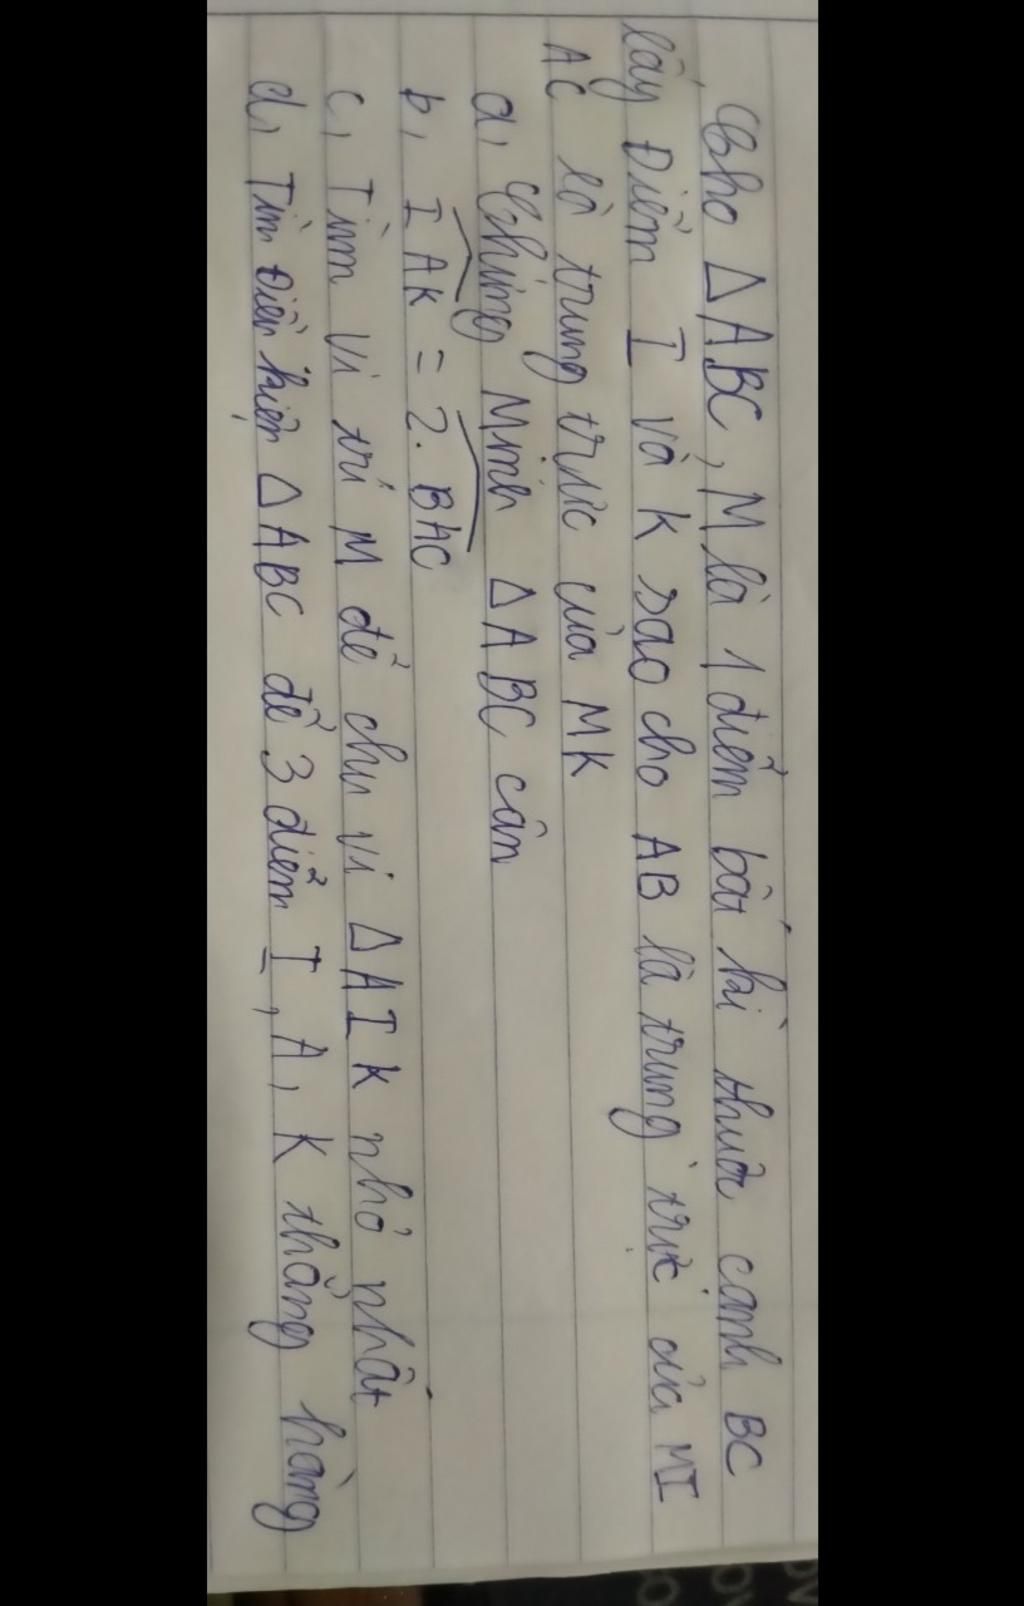 Cho △ABC, M là 1 điểm bất kì thuộc cạnh BC
lấy Điểm I và K sao cho AB là trung trực của MI
AC là trung trực của MK
a, Chứng Minh △ABC cân
b, IAK = 2. BAC
c, Tìm vị trí M để chu vi △AIK nhỏ nhất
d, Tìm Điều kiện △ABC để 3 điểm I, A, K thẳng hàng